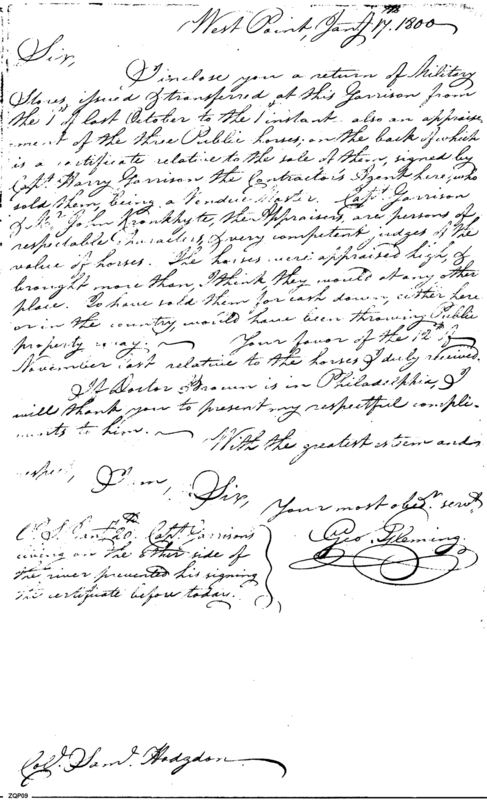 West Point, Jany. 17th. 1800
Sir,
I inclose you a return of Military
Stores, issued & transferred at this Garrison from
the 1st of last October to the 1st instant. also an appraise-
ment of the three Public horses; on the back of which
is a certificate relative to the sale of them, signed by
Capt. Harry Garrison the Contractor's here, who
sold them, being a Vendue Master. Capt. Garrison
& Mr. John Kronkhyte, the Appraisers, are persons of
respectable Characters, & very competent judges of the
value of horses. The horses were appraised high, &
brought more than, I think they would at any other
place. To have sold them for cash down, either here
or in the country, would have been throwing Public
property away. Your favor of the 12th of
November last relative to the horses I duly received.
If Doctor Brown is in Philadelphia, I
will thank you to present my respectful compli-
ments to him. With the greatest esteem and
respect, I am, Sir,
Your most obedt. servt.
Geo. Fleming.
P. S. Jany. 20th. Capt. Garrison's
living on the other side of
the river prevented his signing
the certificate before today.
Colo. Saml. Hodgdon.
ZQP09